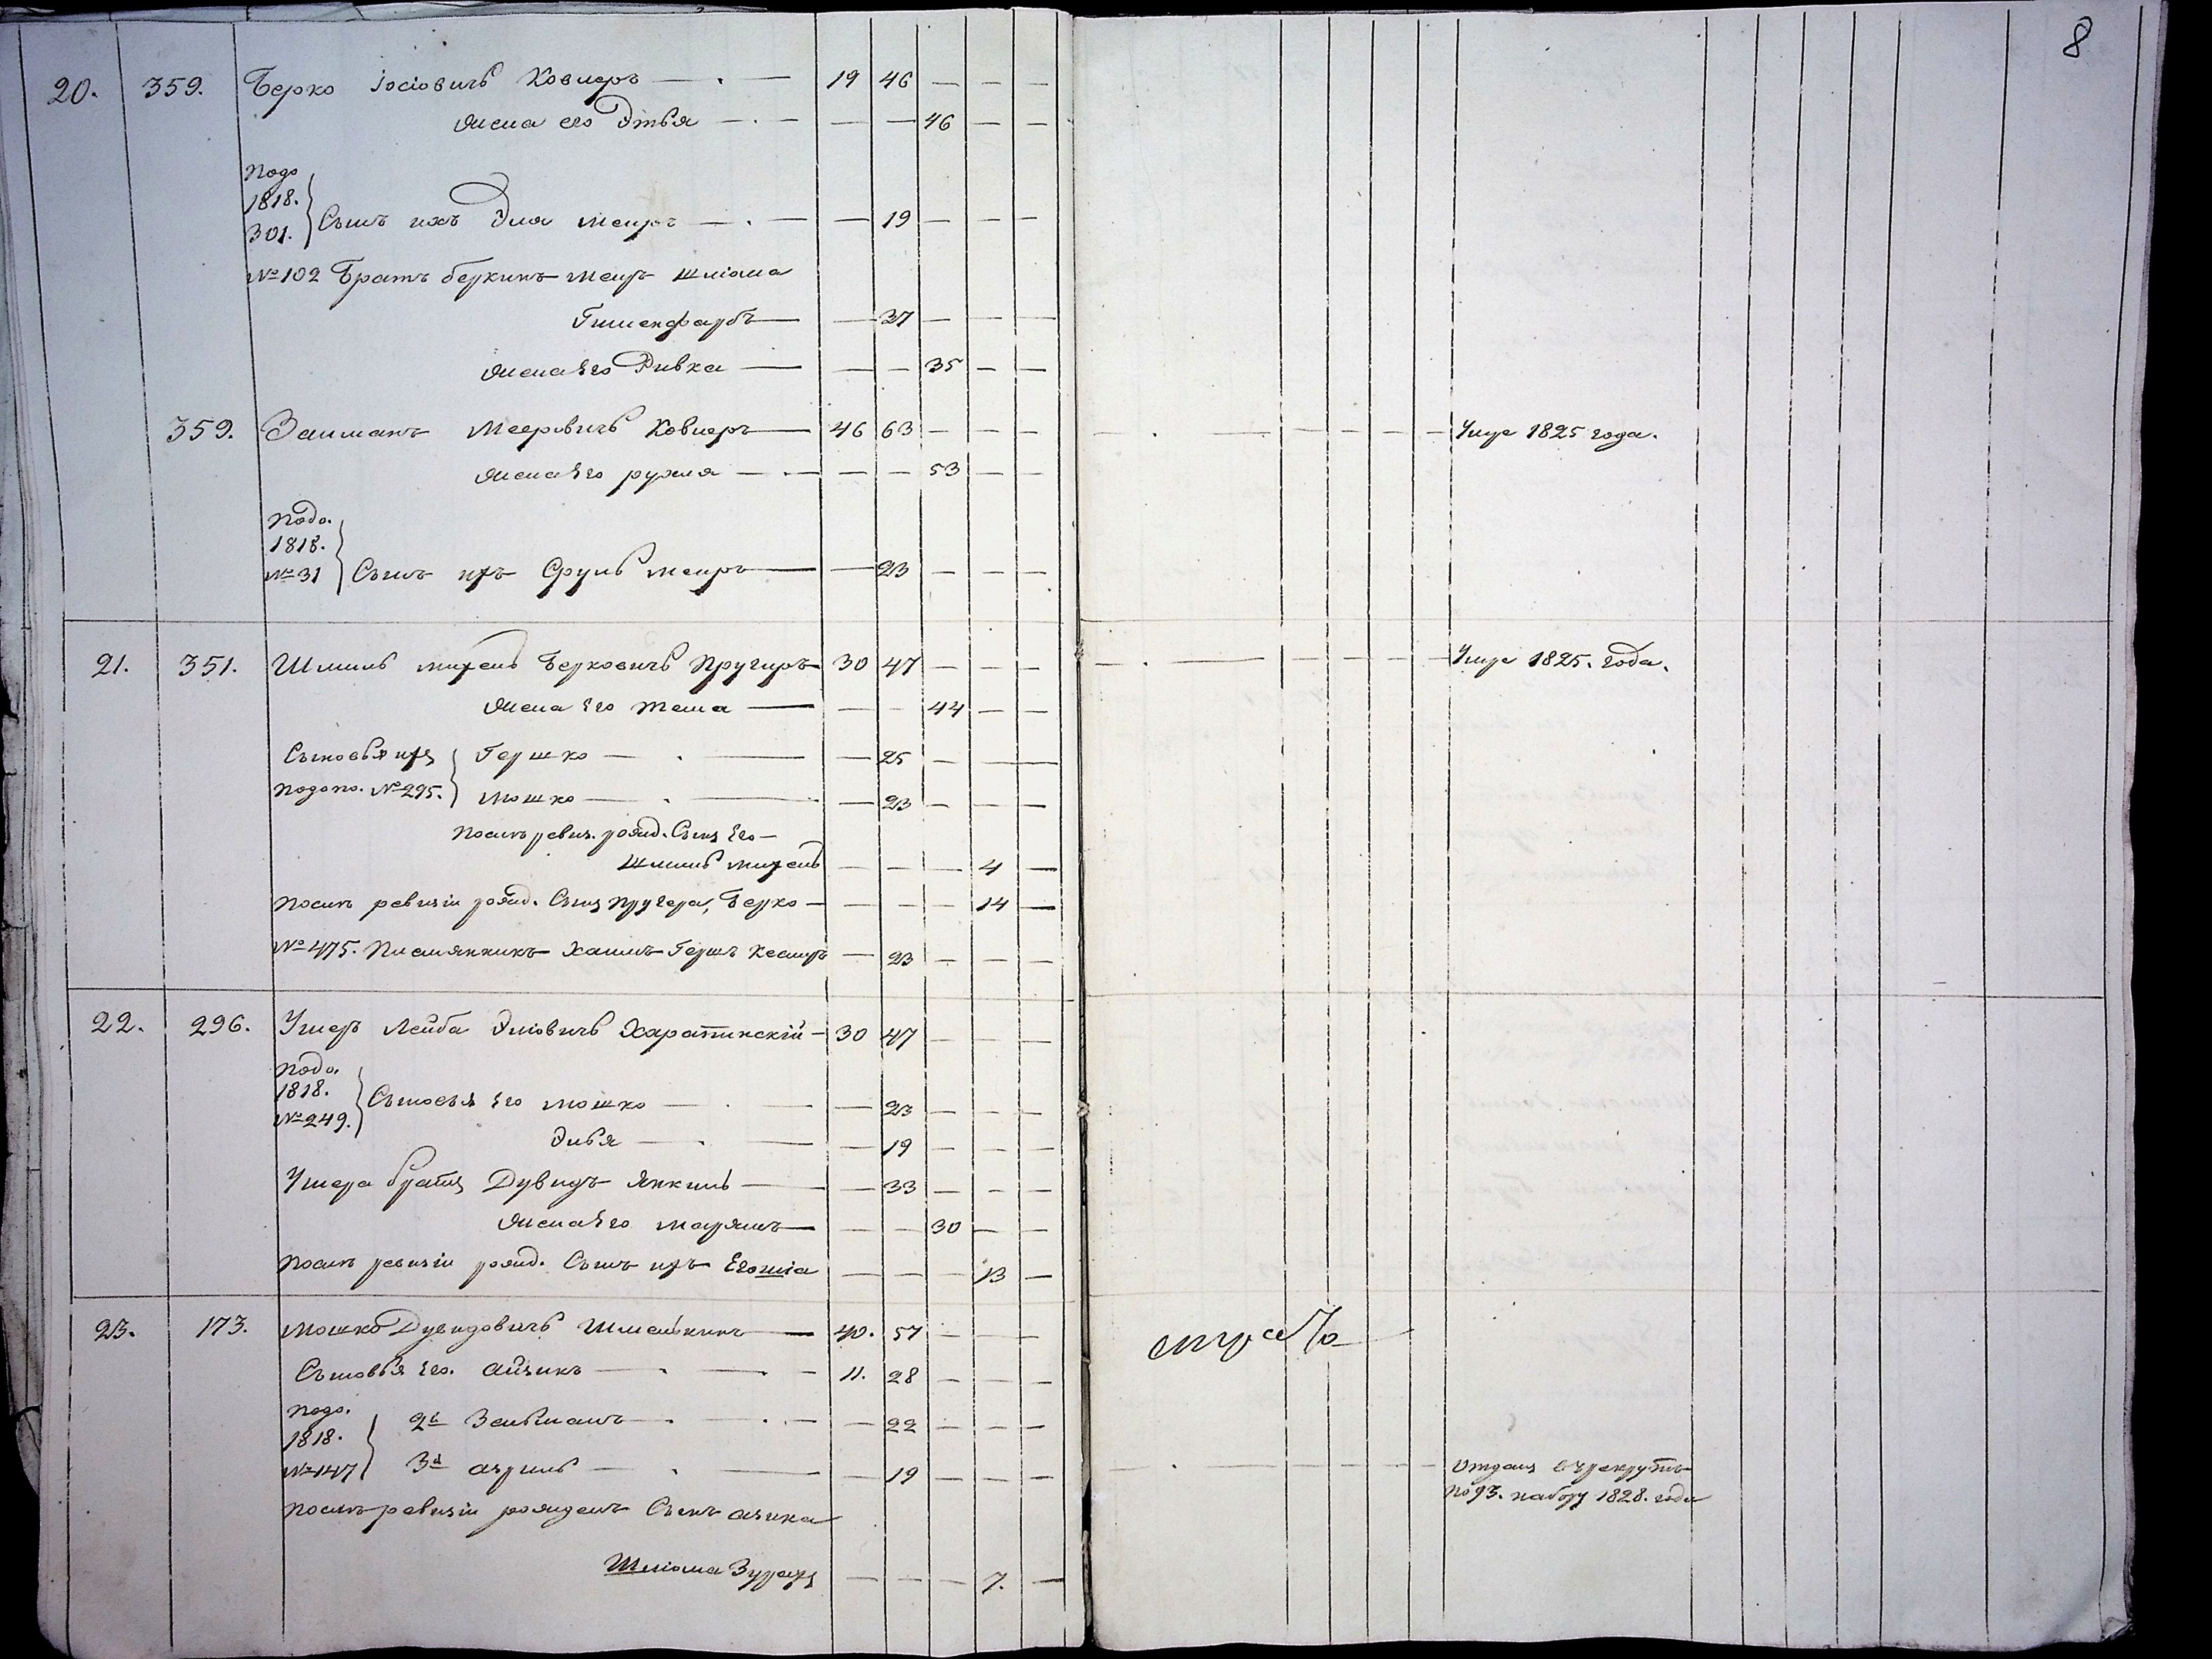 8
20. 359. Берко Іосіовичъ Ковнеръ — . — 19 46 — — —
жена его Этья — . — — — 46 — —
Подо
1818.
301. Сынъ ихъ Эля меиръ — . — — 19 — — —
№ 102 Братъ беркинъ меиръ шліома
Гилленфарбъ — — 37 — — —
жена Его Ривка — — — 35 — —
359. Залманъ Мееровичъ Ковнеръ — 46 63 — — — Умре 1825 года.
жена Его рухля — . — — — 53 — —
Подо.
1818.
№ 31 Сынъ ихъ Сруль меиръ — — 23 — — —
21. 351. Шмиль михель Берковичъ Пругеръ — 30 47 — — — Умре 1825. года.
жена Его тема — — — 44 — —
Сыновья ихъ Гершко — . — — 25 — — —
Подопо. № 295. мошко — . — — 23 — — —
Послѣ ревиз. рожд. Сынъ Его —
Шмиль михель — — — 4 —
послѣ ревизіи рожд. Сынъ пругера, Берко — — — — 14 —
№ 475. Племянникъ Хаимъ Гершъ — 23 — — —
22. 296. Ушеръ Лейба Эліовичъ Харатинскій — 30 47 — — —
Подо.
1818.
№ 249. Сыновья Его мошко — . — — 23 — — —
Элья — . — — 19 — — —
Ушера братъ Дувидъ Янкиль — — 33 — — —
жена Его марямъ — — — 30 — —
послѣ ревизіи рожд. Сынъ ихъ Егошіа — — — 13 —
23. 173. мошко Дувидовичъ Шмелькинъ — 40. 57 — — —
Сыновья Его. айзикъ — . — 11. 28 — — —
Подо.
1818. 2й Зельманъ — . — — 22 — — —
№ 147 3й азриль — . — — 19 — — — отданъ в рекруты
по 93. набору 1828. года
послѣ ревизіи рожденъ Сынъ азика
Шліома — — — 7. —